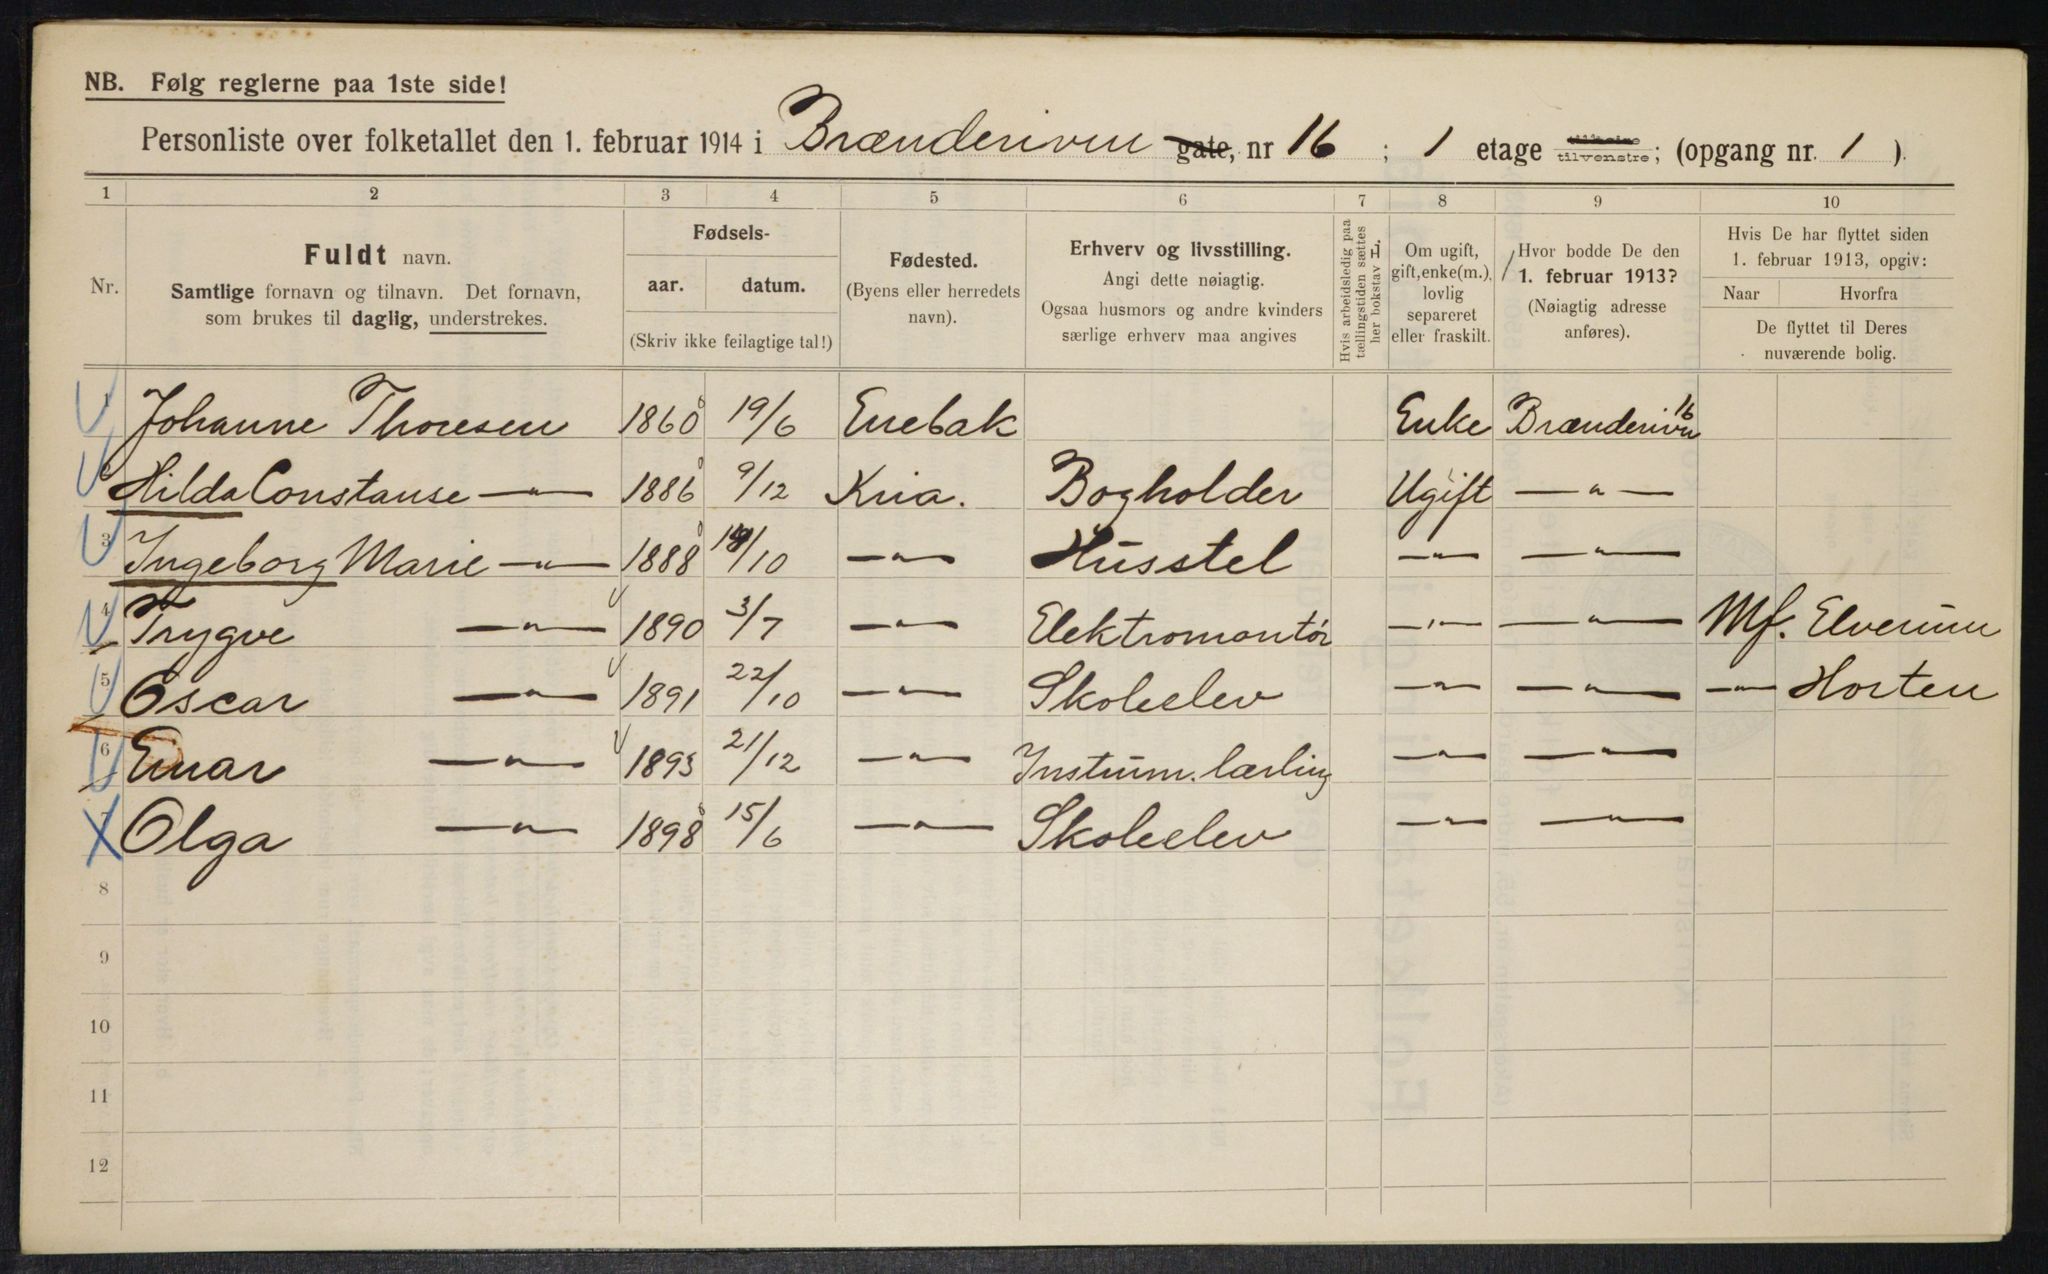 NB. Følg reglerne paa 1ste side!
Personliste over folketallet den 1. februar 1914 i Brænderiven gate, nr 16 ; 1 etage tilvenstre; (opgang nr. 1 ).
1 2 3 4 5 6 7 8 9 10
Nr.
Fuldt navn.
Samtlige fornavn og tilnavn. Det fornavn,
som brukes til daglig, understrekes.
Fødsels-
aar. datum.
(Skriv ikke feilagtige tal!)
Fødested.
(Byens eller herredets
navn).
Erhverv og livsstilling.
Angi dette nøiagtig.
Ogsaa husmors og andre kvinders
særlige erhverv maa angives
Hvis arbeidsledig paa
tællingstiden sættes
her bokstav L.
Om ugift,
gift, enke(m.),
lovlig
separeret
eller fraskilt.
Hvor bodde De den
1. februar 1913?
(Nøiagtig adresse
anføres).
Hvis De har flyttet siden
1. februar 1913, opgiv:
Naar Hvorfra
De flyttet til Deres
nuværende bolig.
1 Johanne Thoresen 1860 19/6 Enebak Enke Brænderiven 16
Hilda Constanse —"— 1886 9/12 Kria. Bogholder Ugift —"—
3 Ingeborg Marie —"— 1888 /10 —"— Husstel —"— —"—
4 Trygve —"— 1890 3/7 —"— Elektromontör —"— —"— Mf. Elverum
5 Oscar —"— 1891 22/10 —"— Skoleelev —"— —"— —"— Horten
6 Einar —"— 1893 21/12 —"— Instrum. lærling —"— —"—
7 Olga —"— 1898 15/6 —"— Skoleelev —"— —"—
8
9
10
11
12